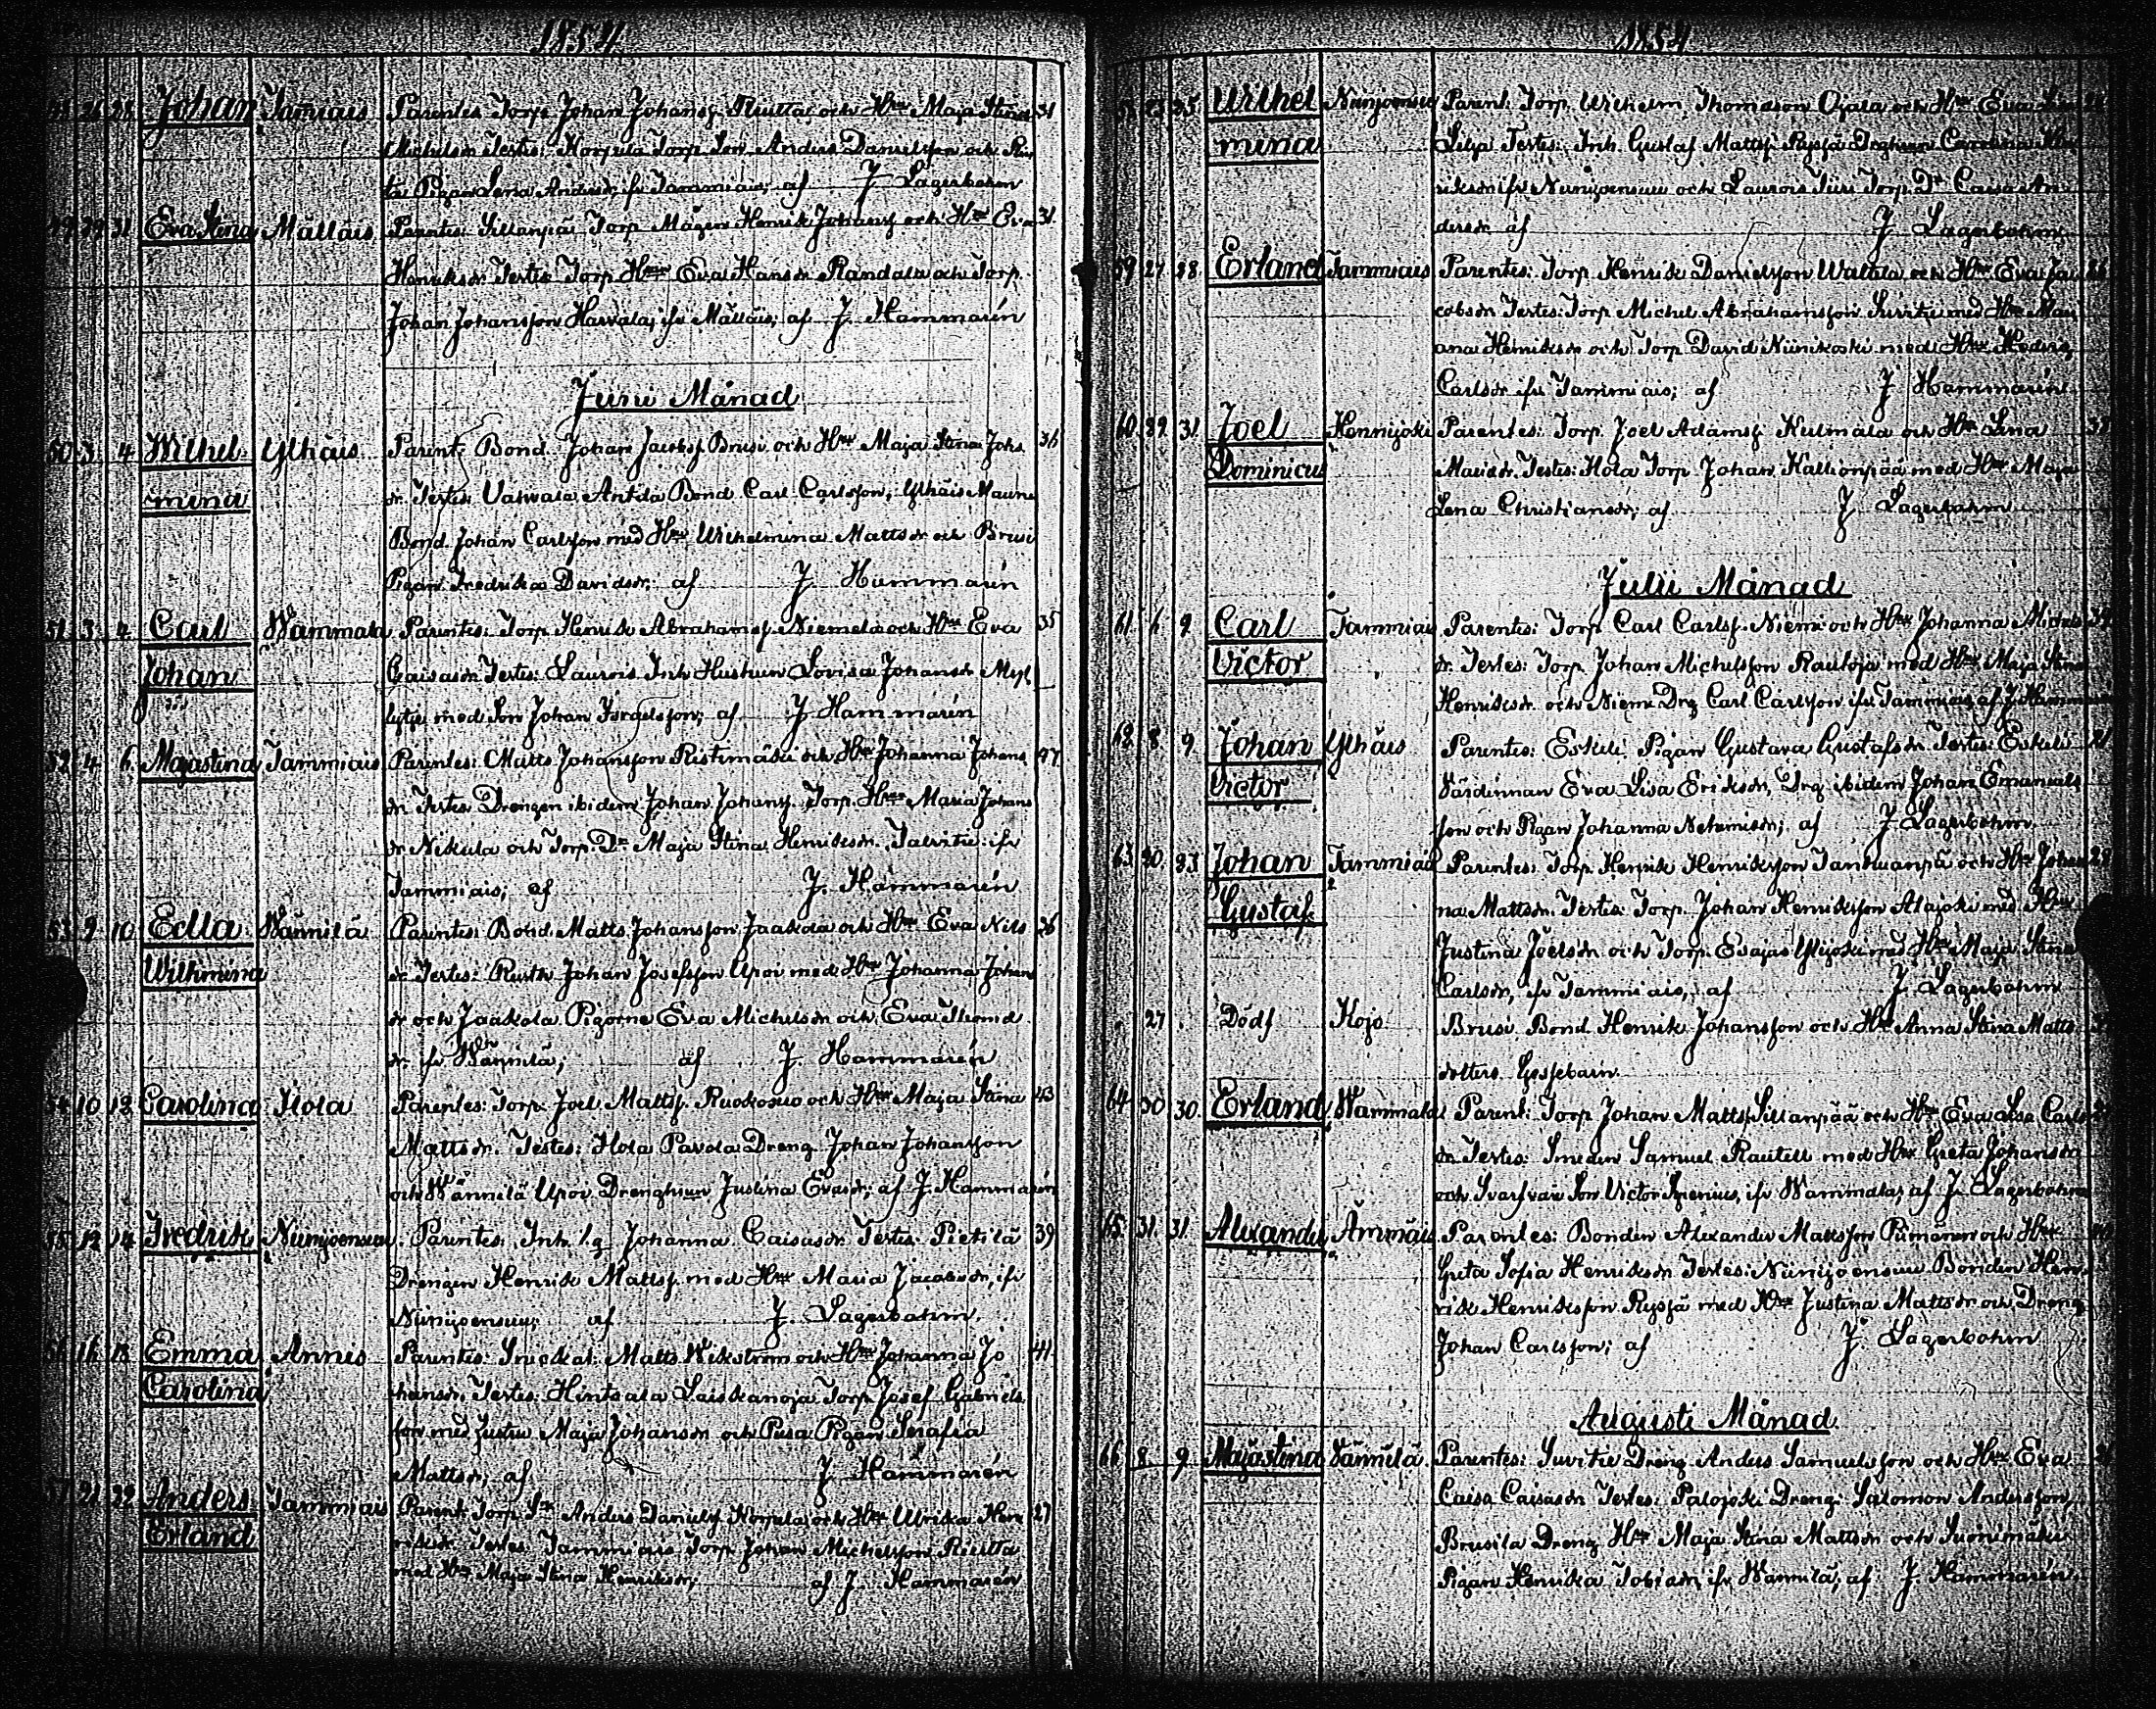 1854
48. 26. 28. Johan Tammiais Parentes Torp. Johan Johansf. Riutta och Hru Maja Stina 31
Michelsdr Testes: Korpula Torp. Son Anders Danielsson och
Pigan Lena Andersdr ifr Tammiais; af J. Lagerbohm
49. 29. 31. Eva Stina Mälläis Parentes: Sillanpää Torp Mågen Henrik Johansf och Hru Eva 31.
Henriksdr Testes Torp. Hru Eva Hansdr Randala och Torp.
Johan Johansson Harvala, ifr Mälläis; af J. Hammarén
Junii Månad
50. 3. 4. Wilhel- Ylhäis Parent: Bond. Johan Jacobsf Brusi och Hru Maja Stina Johs 36
mina dr. Testes: Anttila Bond Carl Carlsson, Ylhäis Maunu
Bond Johan Carlsson med Hru Wilhelmina Mattsdr och Brusi
Pigan Fredrika Davidsdr, af J. Hammarén
51. 3. 4. Carl Wammala Parentes: Torp. Henrik Abrahamsf. Niemelä och Hru Eva 35
Johan Caisasdr Testes: Laurois Inh Hustrun Lovisa Johansdr
med Son Johan Israelsson; af J Hammarén
52. 4. 6. Majastina Tammiais Parentes: Matts Johansson Ristimäki och Hru Johanna Johans 47
dr Testes Drengen ibidem Johan Johansf. Torp. Hru Maria Johans
dr Nikula och Torp. Dr Maja Stina Henriksdr. Talvitie ifr
Tammiais; af J. Hammarén
53. 9. 10. Edla Wännilä Parentes: Bond. Matts Johansson Jaakola och Hru Eva Nils 26
Wilhmina dr Testes: Rusth Johan Josefsson Upoi med Hru Johanna Johans
dr och Jaakola Pigorne Eva Michelsdr och Eva Thomas
dr. ifr Wännilä; af J. Hammarén
54. 10. 12. Carolina Hola Parentes: Torp. Joel Mattsf. Ruokosuo och Hru Maja Stina 43
Mattsdr. Testes: Hola Pavola Dreng Johan Johansson
och Wännilä Upoi Drenghun Justina Evasdr; af J. Hammarén
55. 12. 14. Fredrik Niinijoensuu Parentes: Inh. Johanna Caisasdr Testes: Pietilä 39
Drengen Henrik Mattsf. med Hru Maria Jacobsdr, ifr
Niinijoensuu; af J. Lagerbohm.
56. 16. 18. Emma Annis Parentes: Matts Wikström och Hru Johanna Jo 41.
Carolina hansdr. Testes: Hintsala Laiskanoja Torp. Josef Gabriels
son med Hustru Maja Johansdr och Pusa Pigan Serafia
Mattsdr; af J. Hammarén
57. 21. 22. Anders Tammiais Parent: Torp. Anders Danielsf Korpela och Hru Ulrika Hen 27
Erland riksdr. Testes Tammiais Torp Johan Michelsson Riutta
med Hru Maja Stina Henriksdr; af J. Hammarén
1854
58. 23. 25. Wilhel Niinijoensuu Parent: Torp. Wilhelm Thomasson Ojala och Hru Eva
mina Lilja Testes: Inh. Gustaf Mattsf. Rysjä Drghun Carolina Hen
riksdr ifr Niinijoensuu och Laurois Torp. Dr Caisa An
dersdr af J Lagerbohm
59. 27. 28. Erland Tammiais Parentes: Torp. Henrik Danielsson Waltala och Hru Eva Ja
cobsdr Testes: Torp Michel Abrahamsson med Hru Mari
ana Henriksdr och Torp David Niinikoski med Hru Hedvig
Carlsdr ifr Tammiais; af J Hammarén
60. 29. 31. Joel Hennijoki Parentes: Torp. Joel Adamsf. Kulmala och Hru Lena
Dominicus Testes: Hola Torp. Johan Kallionpää med Hru Maja
Lena Christiansdr; af J Lagerbohm
Julii Månad
61. 6. 9. Carl Tammiais Parentes: Torp Carl Carlsf. Niemi och Hru Johanna Michels 34
Victor dr. Testes: Torp. Johan Michelsson Rautoja med Hru Maja Stina
Henriksdr. och Niemi Drg Carl Carlsson ifr Tammiais, af J Hammarén
62. 8. 9. Johan Ylhäis Parentes: Eskeli Pigan Gustava Gustafsdr. Testes: Eskeli 21
Victor Värdinnan Eva Lisa Eriksdr, Drg ibidem Johan Emanuels
son och Pigan Johanna Nehemiasdr; af J Lagerbohm
63. 20. 23. Johan Tammiais Parentes: Torp. Henrik Henriksson Tanhuanpä och Hru Johan 28
Gustaf na Mattsdr. Testes: Torp. Johan Henriksson Alajoki med Hru
Justina Joelsdr och Torp. Esajas Ylijoki med Hru Maja Stina
Carlsdr, ifr Tammiais, af J. Lagerbohm
27. Dödf Kojo Brusi Bond Henrik Johansson och Hru Anna Stina Matts
dotters Gossebarn
64. 30. 30. Erland Wammala Parent: Torp Johan Mattsf. Sillanpää och Hru Eva Lisa Carls
dr Testes: Smeden Samuel Rautell med Hru Greta Johansdr
och Svarfvar Son Victor Grenius, ifr Wammala; af J. Lagerbohm
65. 31. 31. Alexander Ämmäis Parentes: Bonden Alexander Mattsson Pimänen och Hru
Greta Sofia Henriksdr Testes: Niinijoensuu Bonden Hen
rik Henriksson Rysjä med Hru Justina Mattsdr och Dreng
Johan Carlsson; af J. Lagerbohm
Augusti Månad
66. 8. 9. Majastina Vännilä Parentes: Suvitie Dreng Anders Samuelsson och Hru Eva
Caisa Caisasdr Testes: Palojoki Dreng Salomon Andersson,
Brusila Dreng Hru Maja Stina Mattsdr och Suonimäki
Pigan Henrika Tobiasdr ifr Wännilä, af J. Hammarén.